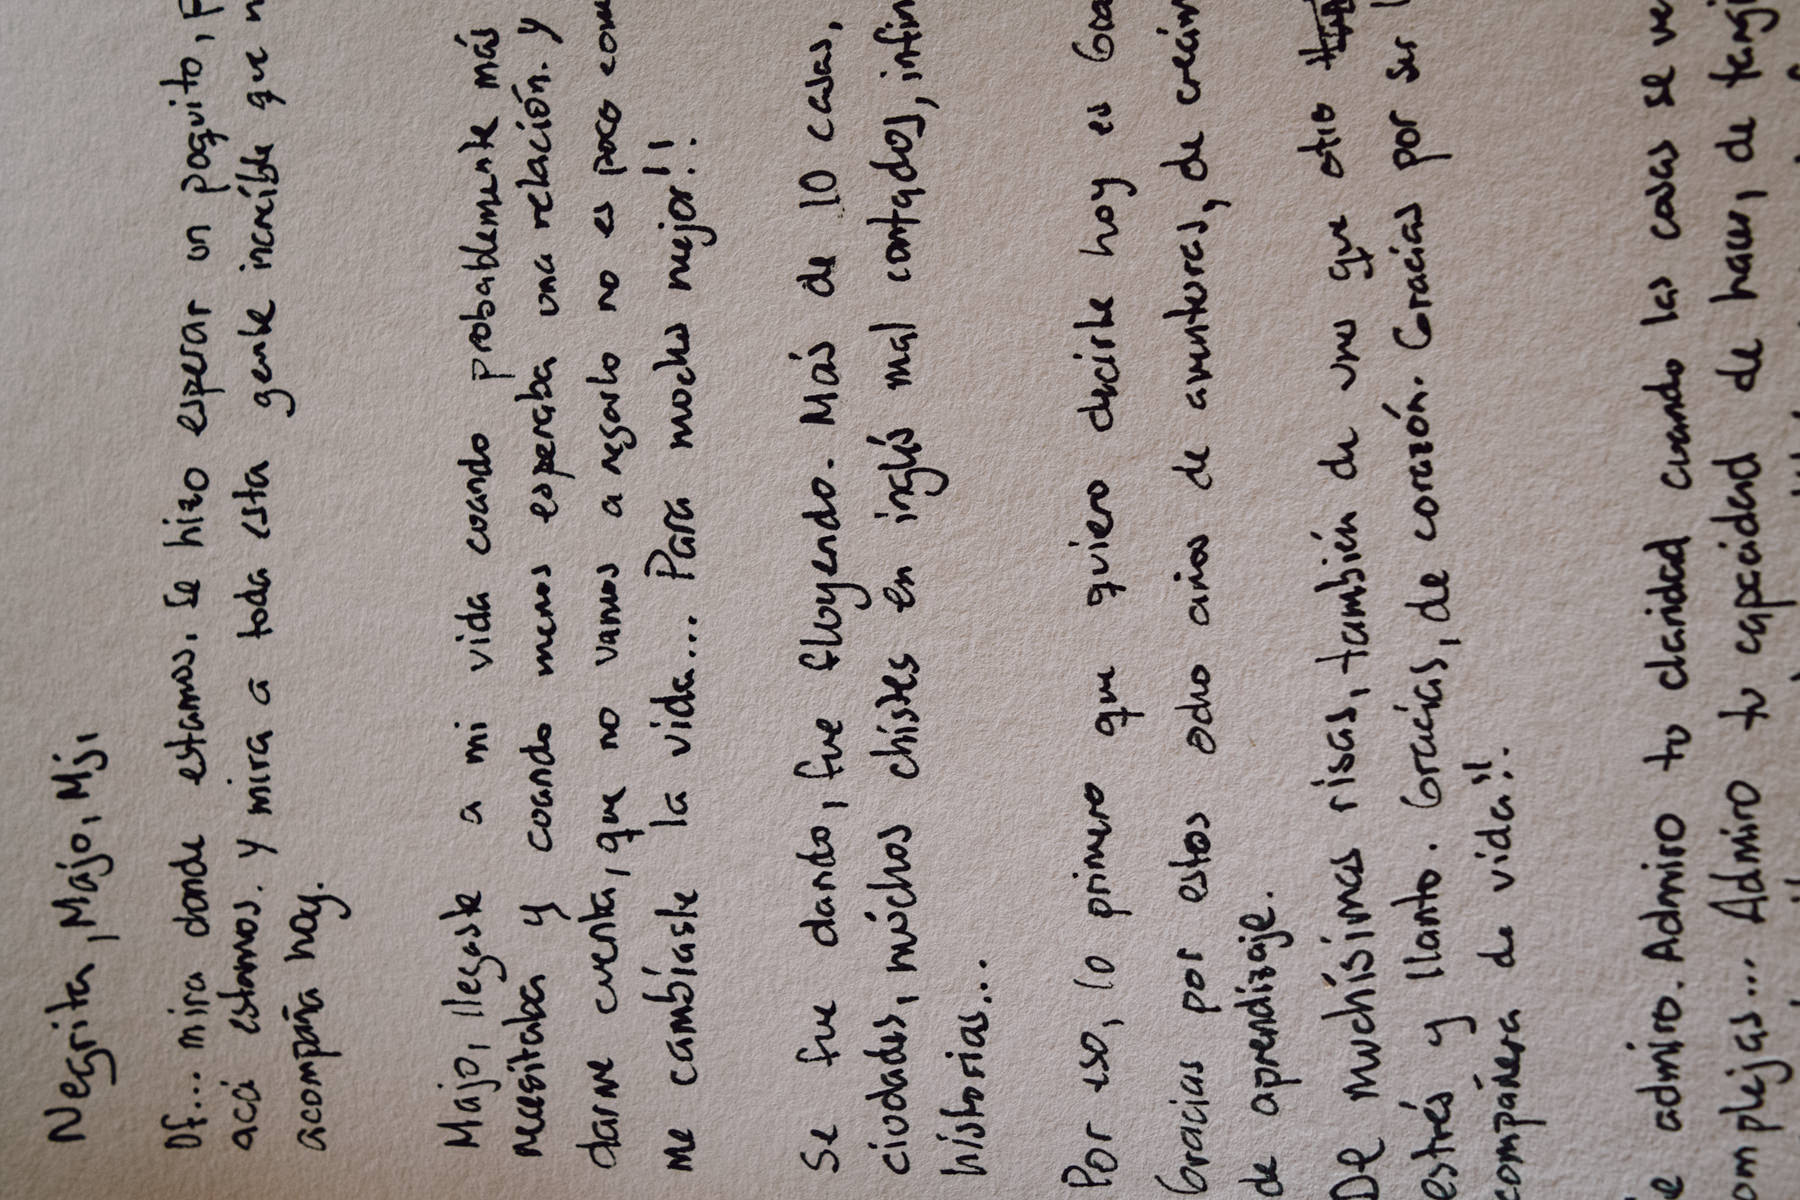 Negrita, Majo, Mj,
Uf... mira donde estamos. Se hizo esperar un poquito, p
acá estamos. y mira a toda esta gente increíble que n
acompaña hoy.
Majo, llegaste a mi vida cuando probablemente más
necesitaba y cuando menos esperaba una relación. y
darme cuenta, que no vamos a negarlo no es poco com
me cambiaste la vida... Para mucho mejor!!
Se fue dando, fue fluyendo. Más de 10 casas,
ciudades, muchos chistes en inglés mal contados, infin
historias...
Por eso, lo primero que quiero decirte hoy es Gra
Gracias por estos ocho años de aventuras, de crecim
de aprendizaje.
De muchísimas risas, también de unas que otro
estrés y llanto. Gracias, de corazón. Gracias por ser
compañera de vida!!
e admiro. Admiro tu claridad cuando las cosas se ve
omplejas... Admiro tu capacidad de hacer, de tangi